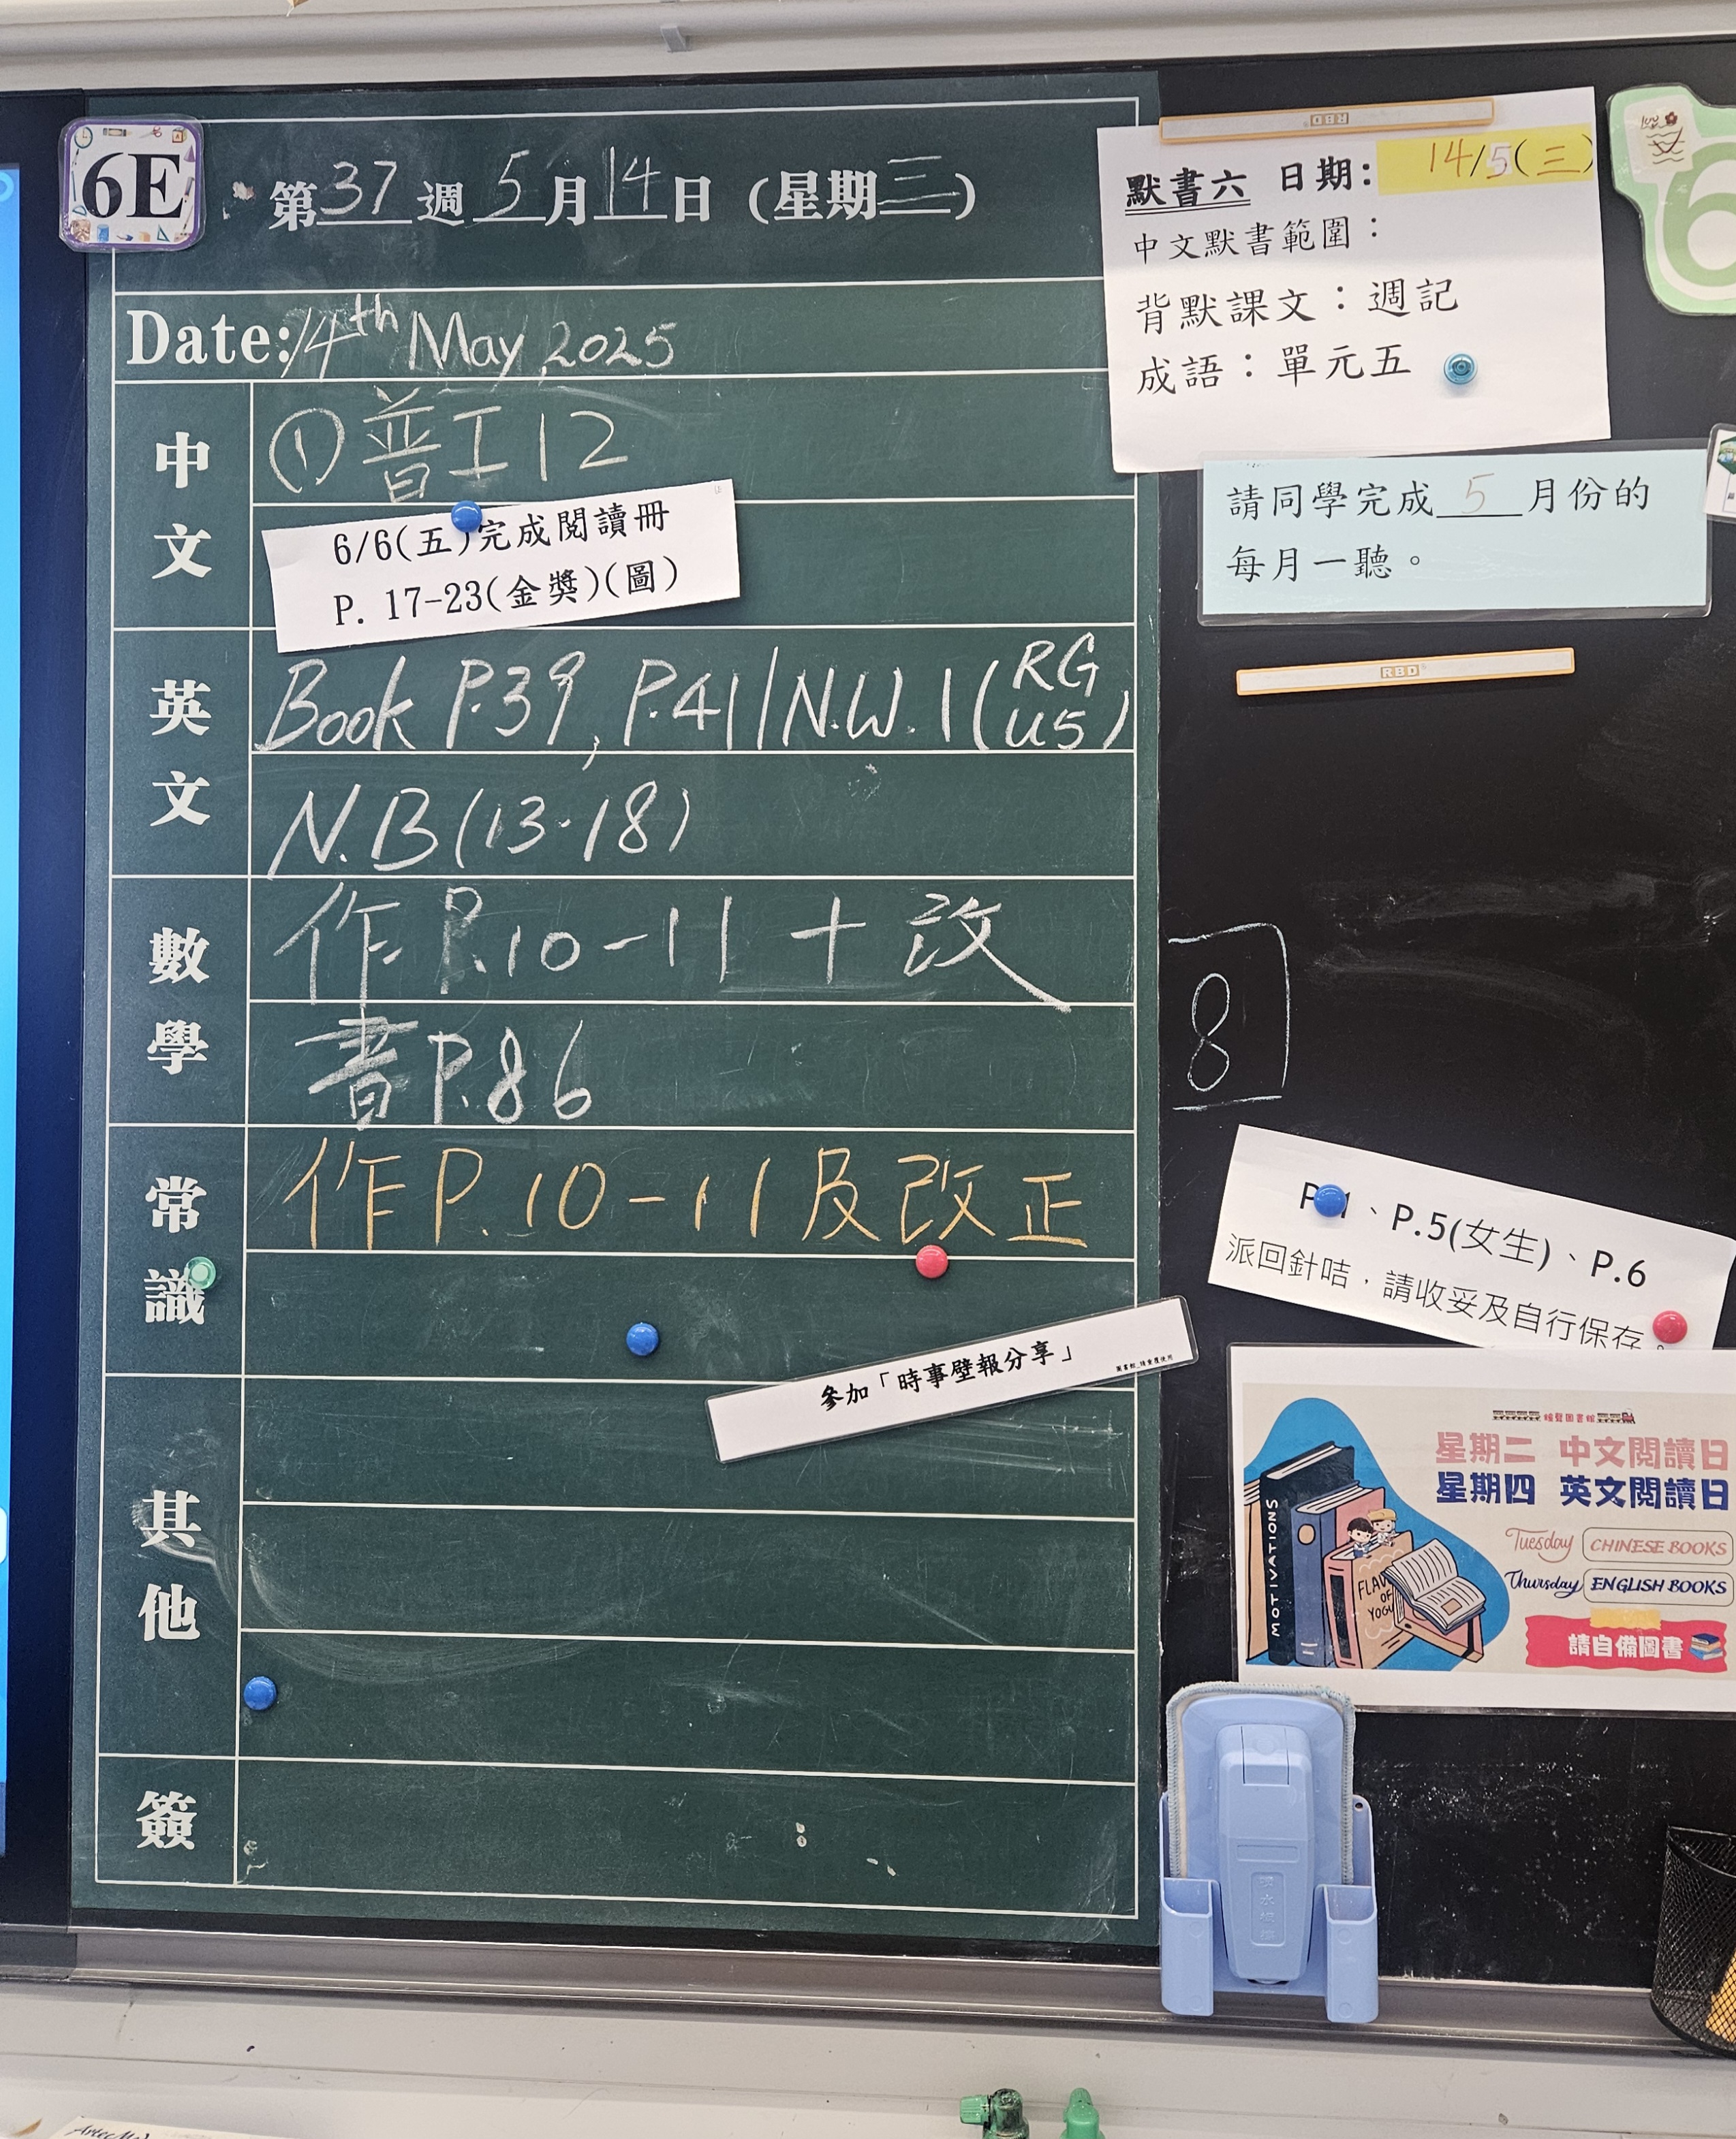 6E
第37週5月14日(星期三)
Date: 14th May, 2025
中文
①普工12
6/6(五)完成閱讀冊
P. 17-23(金獎)(圖)
英文
Book P.39, P.41/N.W.1(RG U5)
N.B(13-18)
數學
作P.10-11+改
書P.86
常識
作P.10-11及改正
參加「時事壁報分享」
其他
簽
RBD
默書六 日期: 14/5(三)
中文默書範圍：
背默課文：週記
成語：單元五
6
請同學完成 5 月份的
每月一聽。
RBD
8
、P.5(女生)、P.6
派回針咭，請收妥及自行保存。
星期二 中文閱讀日
星期四 英文閱讀日
Tuesday CHINESE BOOKS
Thursday ENGLISH BOOKS
請自備圖書
MOTIVATIONS
OF